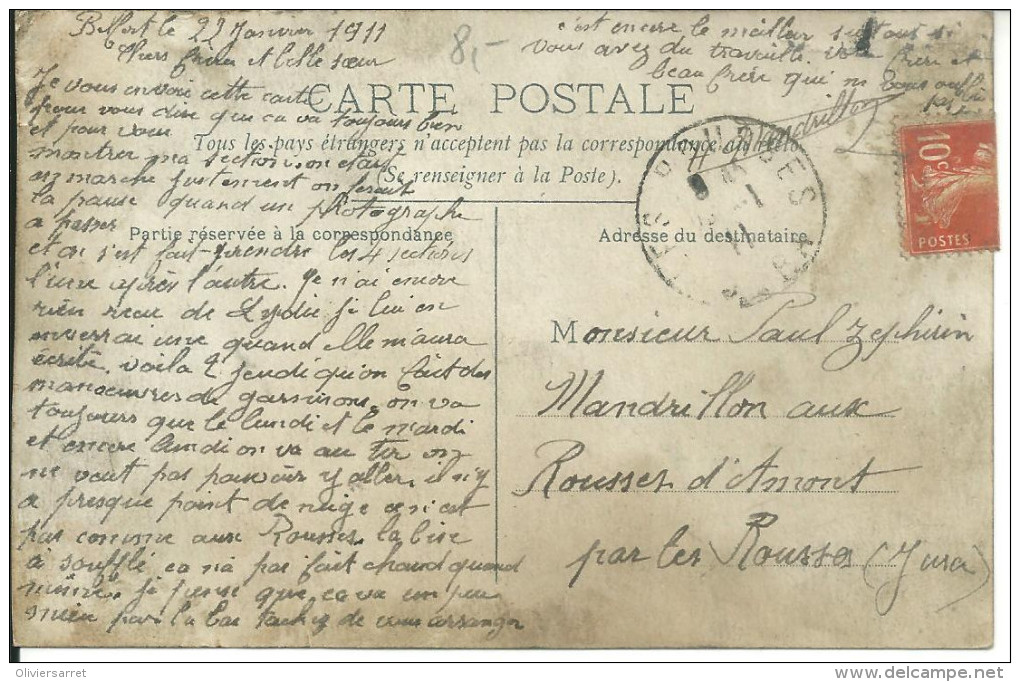 Belfort le 22 Janvier 1911
Chers frère et belle sœur
8,-
Je vous envoie cette carte
pour vous dire que ça va toujours bien
et pour vous
montrer ma section, on était
en marche justement on ferait
la pause quand un photographe
a passer
et on s'est fait prendre les 4 sections
l'une après l'autre. Je n'ai encore
rien reçu de Lydie je lui en
enverrai une quand elle m'aura
écrite. voila 2 jeudi qu'on fait des
manœuvres de garnison, on va
toujours que le lundi et le mardi
et encore lundi on va au tir on
ne veut pas pouvoir y aller, il n'y
a presque point de neige ce n'est
pas comme aux Rousses la bise
à soufflé, ça n'a pas fait chaud quand
même. je pense que ça va un peu
mieu par là bas tachez de vous arranger
c'est encore le meilleur surtout si
vous avez du travaille. Votre frère et
beau frère qui ne vous oublie
pas
Mandrillon
CARTE POSTALE
Tous les pays étrangers n'acceptent pas la correspondance au recto
(Se renseigner à la Poste).
Partie réservée à la correspondance
Adresse du destinataire
10c
POSTES
Monsieur Paul Zéphirin
Mandrillon aux
Rousses d'Amont
par les Rousses (Jura)
Oliviersarret
www.delcampe.net